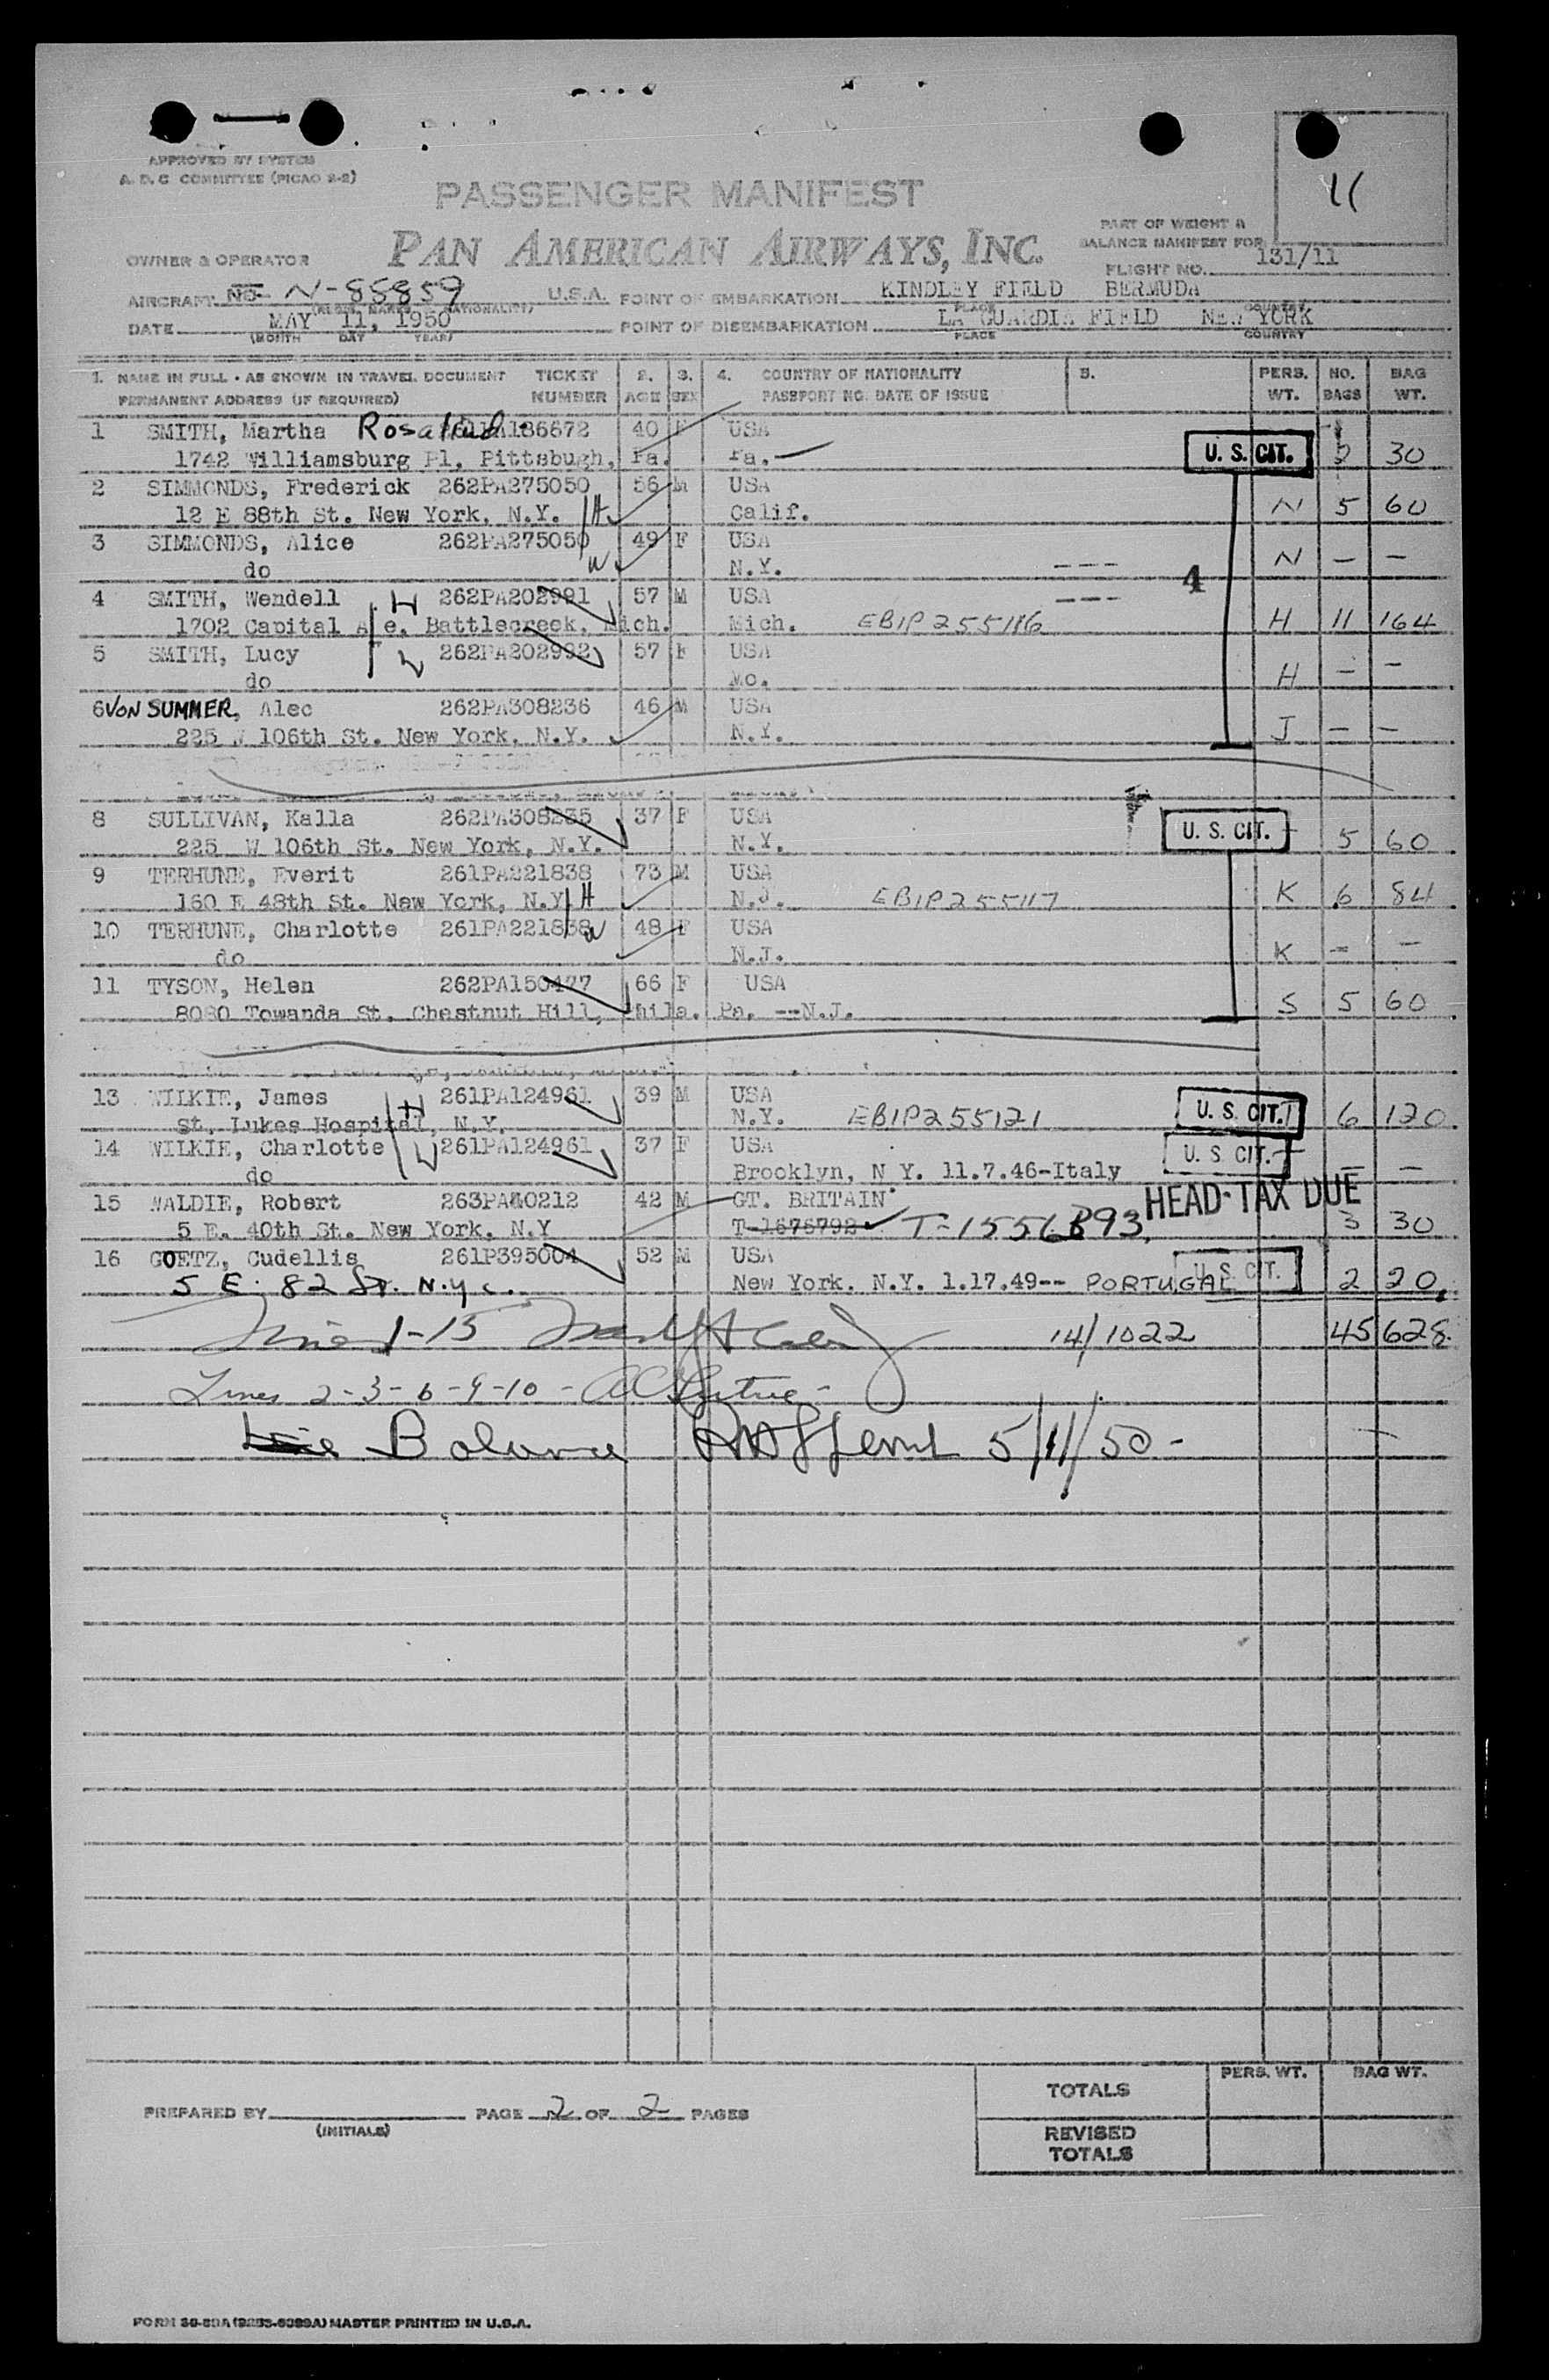 APPROVED BY SYSTEM
A. D. C COMMITTEE (PICAO 2-2)
PASSENGER MANIFEST
11
PART OF WEIGHT &
BALANCE MANIFEST FOR
OWNER & OPERATOR PAN AMERICAN AIRWAYS, INC.
FLIGHT NO. 131/11
AIRCRAFT NO. N-85859 U.S.A. POINT OF EMBARKATION KINDLEY FIELD BERMUDA
PLACE COUNTRY
DATE MAY 11, 1950 POINT OF DISEMBARKATION LA GUARDIA FIELD NEW YORK
(MONTH DAY YEAR) PLACE COUNTRY
1. NAME IN FULL - AS SHOWN IN TRAVEL DOCUMENT TICKET 2. 3. 4. COUNTRY OF NATIONALITY 5. PERS. NO. BAG
PERMANENT ADDRESS (IF REQUIRED) NUMBER AGE SEX PASSPORT NO. DATE OF ISSUE WT. BAGS WT.
1 SMITH, Martha Rosalind 186672 40 F USA
1742 Williamsburg Pl. Pittsbugh, Pa. Pa. U. S. CIT. 30
2 SIMMONDS, Frederick 262PA275050 56 M USA
12 E 88th St. New York, N.Y. H Calif. N 5 60
3 SIMMONDS, Alice 262PA275050 49 F USA
do W N.Y. --- N — —
4 SMITH, Wendell H 262PA202991 57 M USA --- 4
1702 Capital A e. Battlecreek, Mich. Mich. EBIP255116 H 11 164
5 SMITH, Lucy W 262PA202992 57 F USA
do Mo. H — —
6 VON SUMMER, Alec 262PA308236 46 M USA
225 W 106th St. New York, N.Y. N.Y. J — —
8 SULLIVAN, Kalla 262PA308235 37 F USA
225 W 106th St. New York, N.Y. N.Y. U. S. CIT. 5 60
9 TERHUNE, Everit 261PA221838 73 M USA
160 E 48th St. New York, N.Y H N.J. EBIP255117 K 6 84
10 TERHUNE, Charlotte 261PA221838 W 48 F USA
do N.J. K — —
11 TYSON, Helen 262PA150477 66 F USA
8080 Towanda St. Chestnut Hill, Phila. Pa. --N.J. S 5 60
13 WILKIE, James H 261PA124961 39 M USA
St. Lukes Hospital, N.Y. N.Y. EBIP255121 U. S. CIT. 6 120
14 WILKIE, Charlotte W 261PA124961 37 F USA U. S. CIT.
do Brooklyn, N Y. 11.7.46-Italy — —
15 WALDIE, Robert 263PA40212 42 M GT. BRITAIN HEAD-TAX DUE
5 E. 40th St. New York, N.Y T-1676792 T-1556893 3 30
16 GOETZ, Cudellis 261P395004 52 M USA
5 E. 82 St. N.Y.C. New York, N.Y. 1.17.49-- PORTUGAL U. S. CIT. 2 20
1-15 14/1022 45 628
Lines 2-3-6-9-10 -
Balance 5/11/50-
PREPARED BY (INITIALS) PAGE 2 OF 2 PAGES
PERS. WT. BAG WT.
TOTALS
REVISED
TOTALS
MASTER PRINTED IN U.S.A.